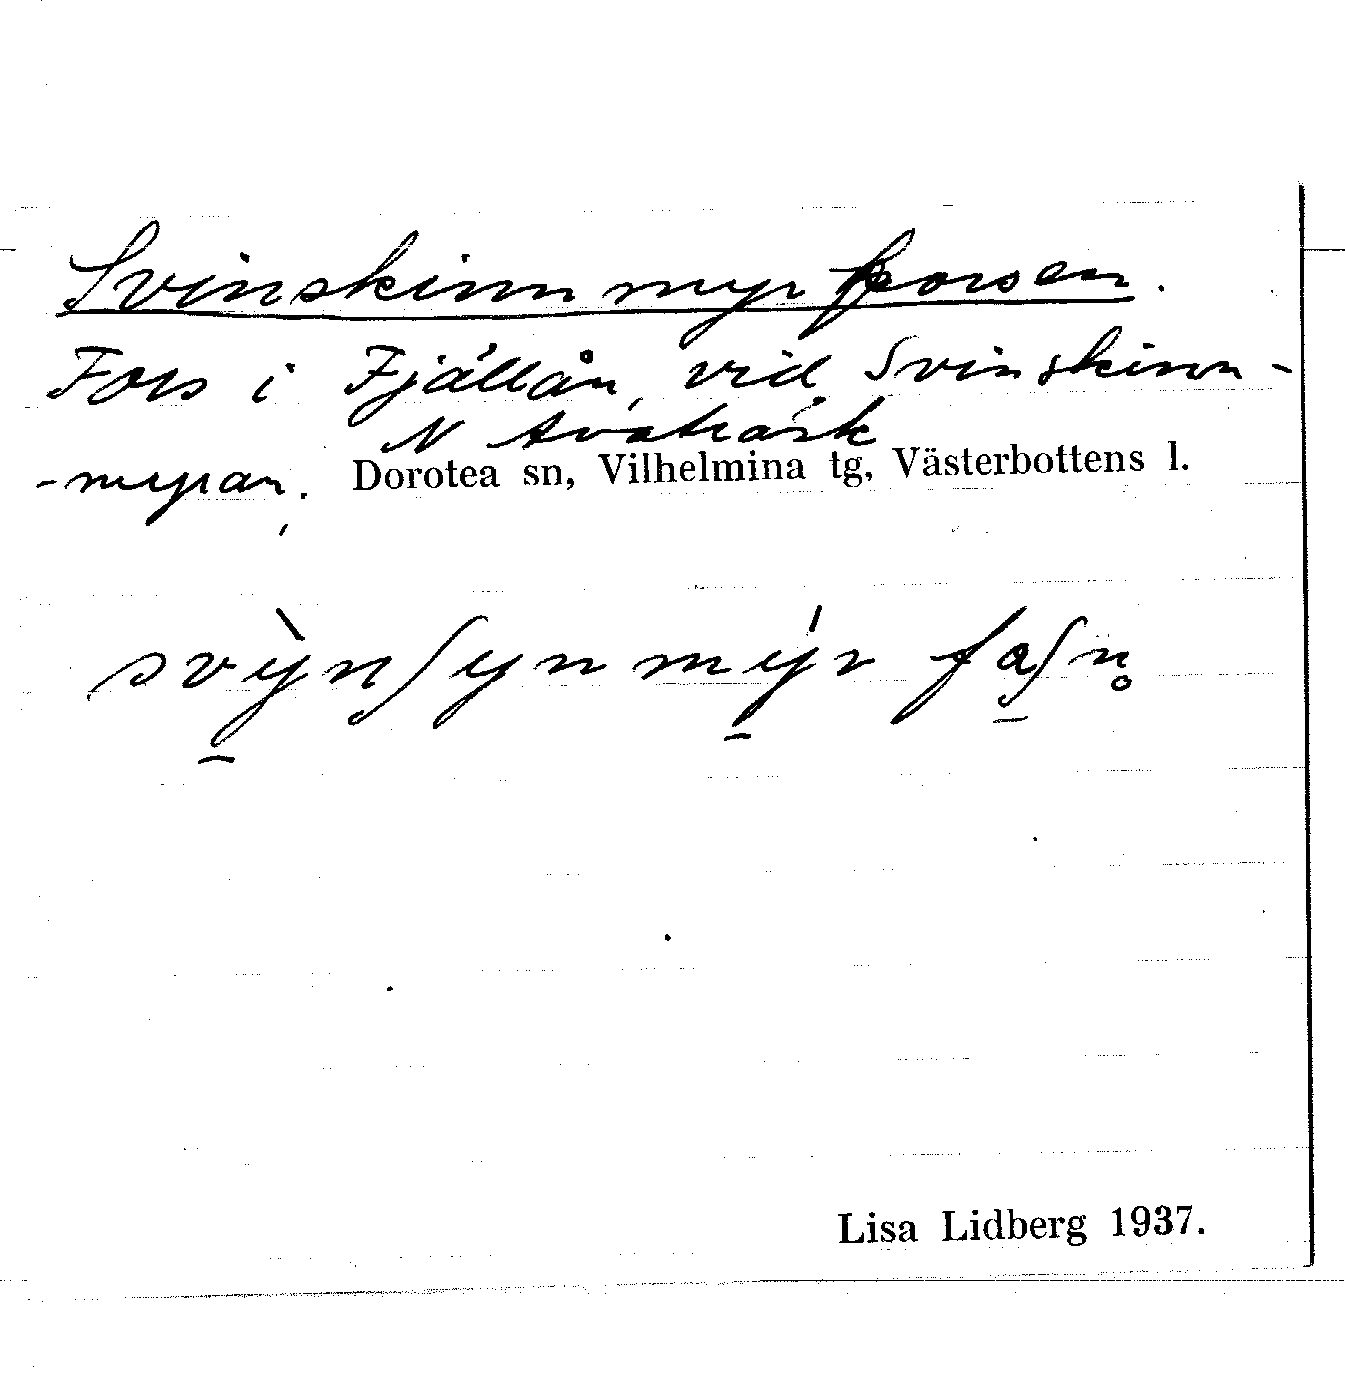 Svinskinnmyrforsen.
Fors i Fjällån, vid Svinskinn-
N Avaträsk
-myran. Dorotea sn, Vilhelmina tg, Västerbottens l.
svỳnʃynmýr faʃn̥
Lisa Lidberg 1937.